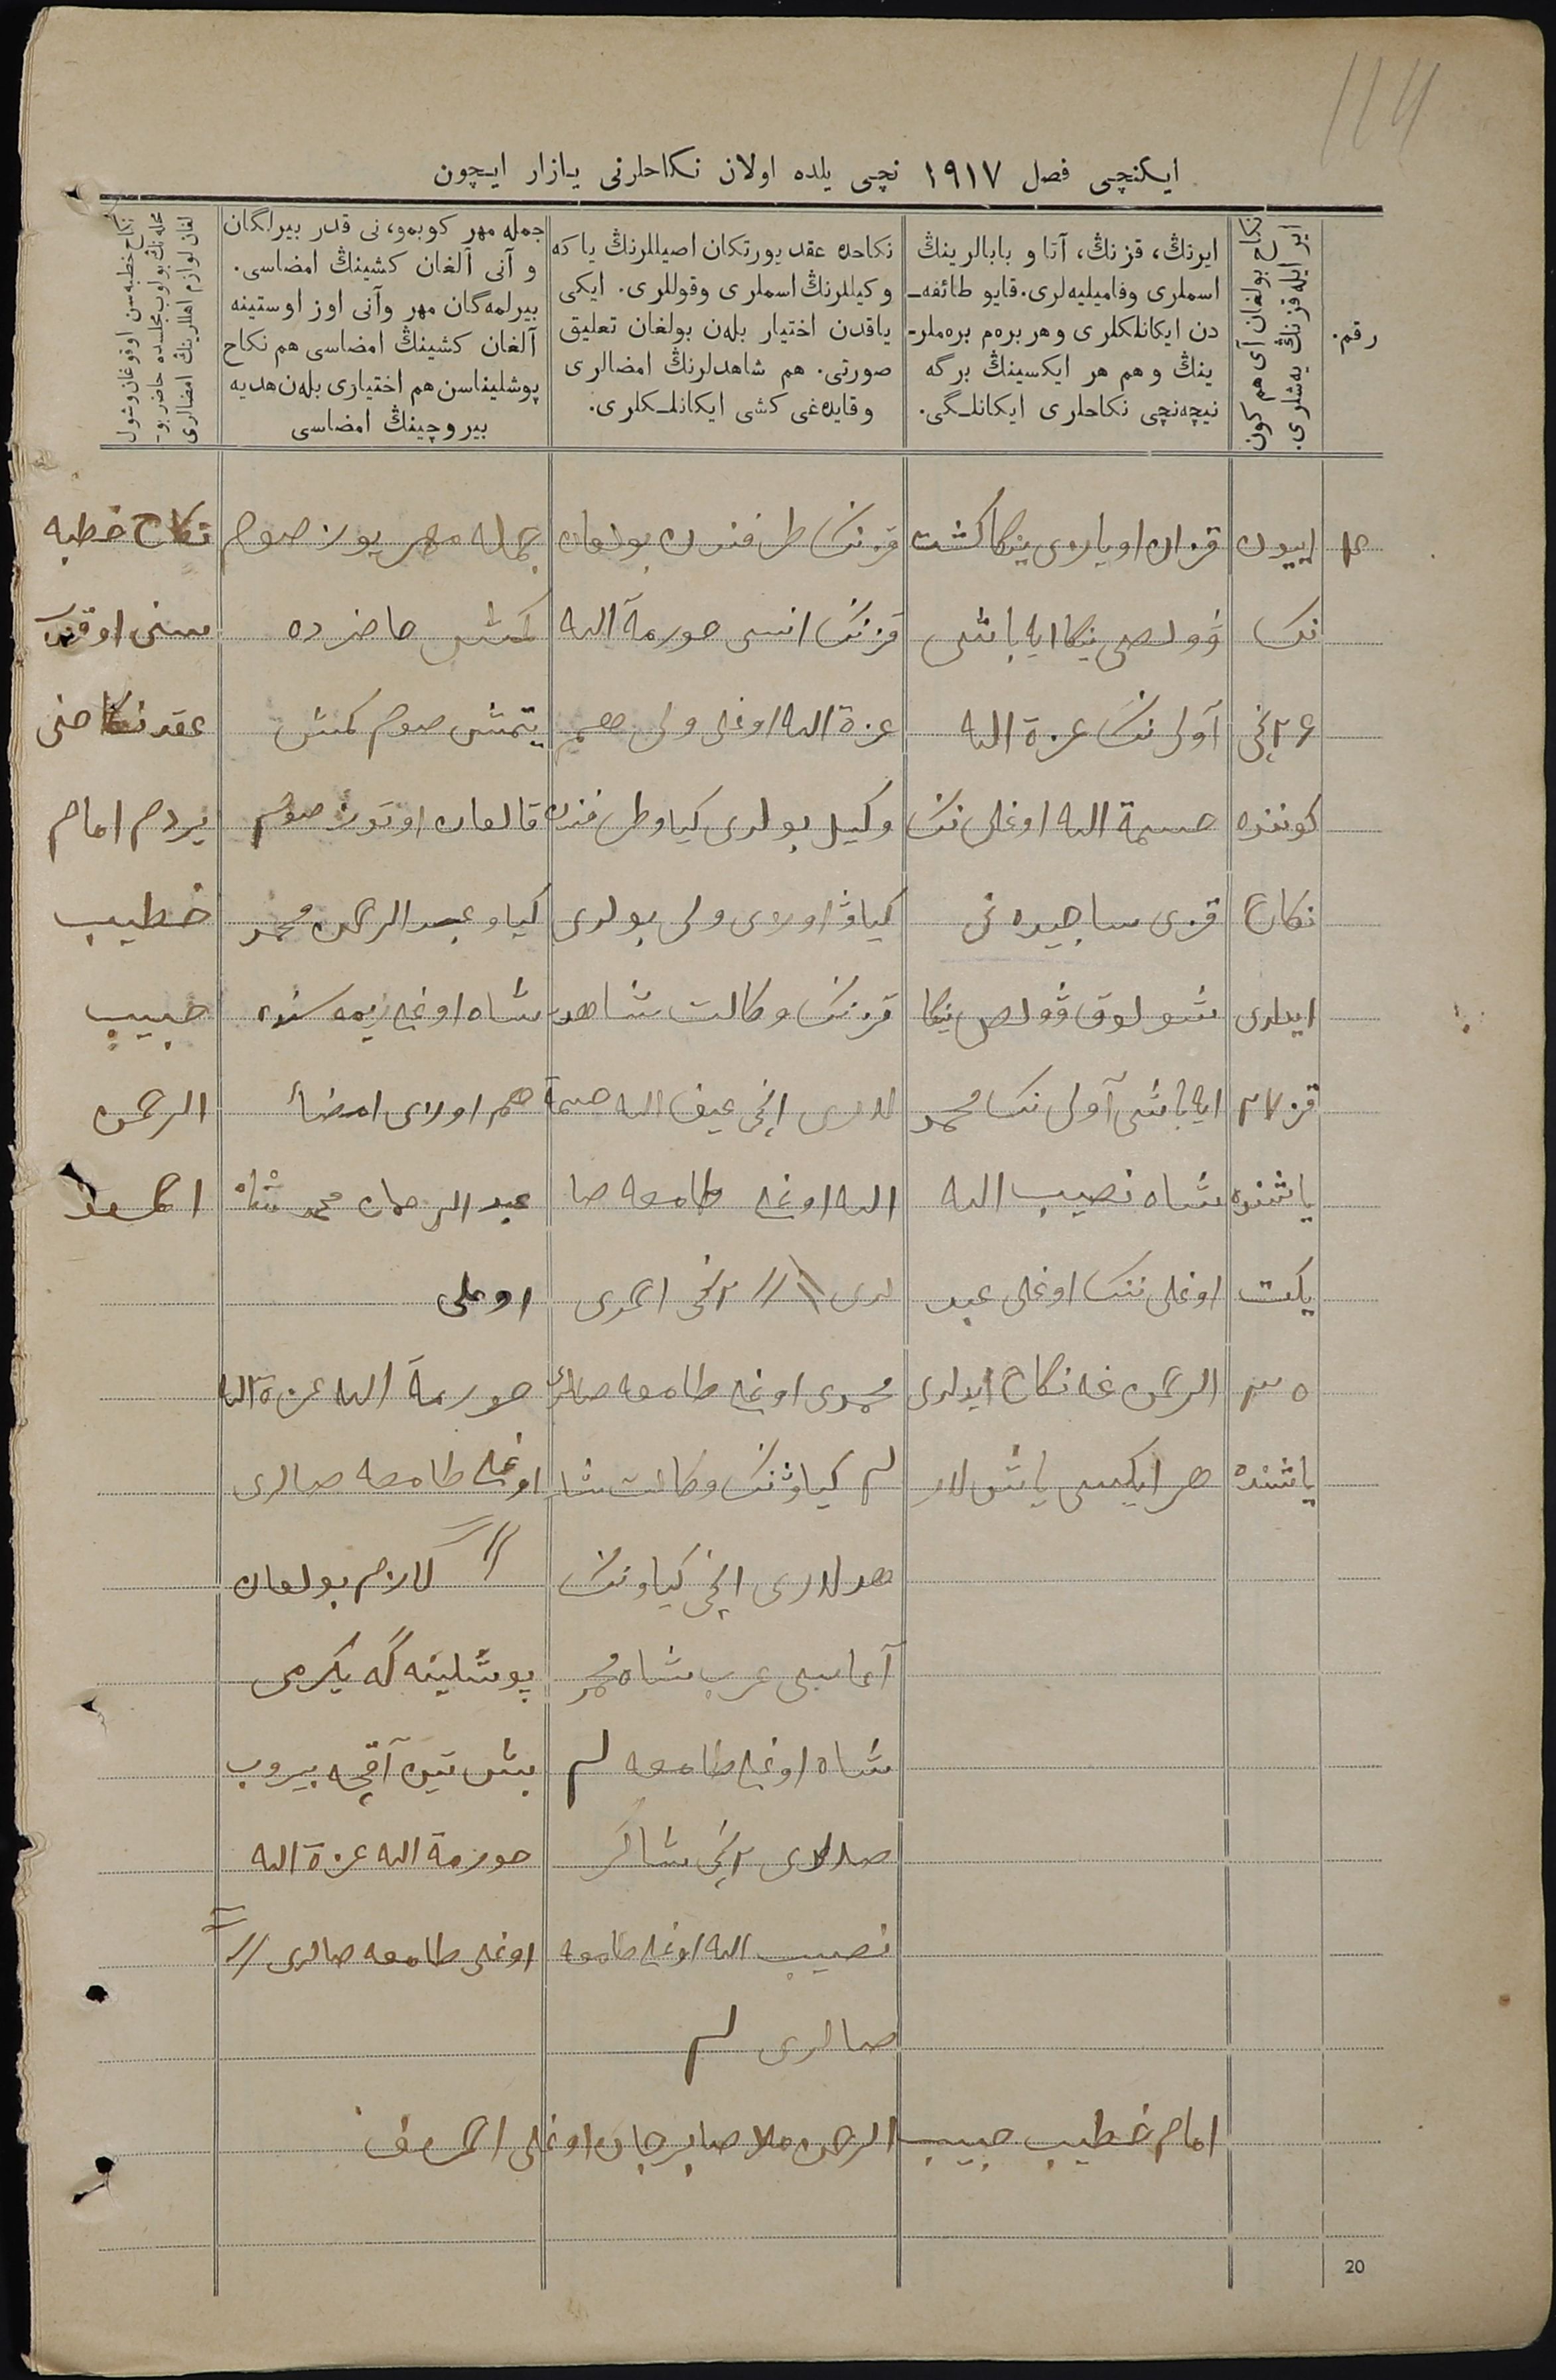 114
ایكنچی فصل ١٩١٧ نچی یلده اولان نكاحلرنی یازار ایچون
رقم.
نكاح بولغان آی هم كون
ایر ایله قزنڭ یه‌شلری.
ایرنڭ، قزنڭ، آتا و بابالرینڭ
اسملری وفامیلیه‌لری. قایو طائفه‌ـ
دن ایكانلكلری وهر بره‌م بره‌ملرـ
ینڭ وهم هر ایكسینڭ برگه
نیچه‌نچی نكاحلری ایكانلـگی.
نكاحده عقد یورتكان اصیللرنڭ یا كه
وكیللرنڭ اسملری وقوللری. ایكی
یاقدن اختیار بله‌ن بولغان تعلیق
صورتی. هم شاهدلرنڭ امضالری
وقایده‌غی كشی ایكانلـكلری.
جمله مهر كوبمو، نی قدر بیرلگان
و آنی آلغان كشینڭ امضاسی.
بیرلمه‌گان مهر وآنی اوز اوستینه
آلغان كشینڭ امضاسی هم نكاح
پوشلیناسن هم اختیاری بله‌ن هدیه
بیروچینڭ امضاسی
نكاح خطبه‌سن اوقوغان وشول
محله‌نڭ بولوب مجلسده حاضر بوـ
لغان لوازم اهللرینڭ امضالری
٤
اییون
نك
٢٤ نچی
كوننده
نكاح
ایدلدی
قز ٢٧
یاشنده
یكت
٣٥
یاشنده
قزان اویازی ینكا كشت
ڤولصی ینكا ایه باشی
آولی ننك عزة الله
حسمة الله اوغلی ننك
قزی ساجیده نی
شولوق ڤولص ینكا
ایه باشی آولی ننك محمد
شاه نصیب الله
اوغلی ننك اوغلی عبد
الرحمن غه نكاح ایدلدی
هر ایكیسی یاش لار
قزننك طرفندن بولغان
قزننك انسی حورمة الله
عزة الله اوغلی ولی هم
وكیل بولدی كیاو طرفندن
كیاو اوزی ولی بولدی
قزننك وكالت شاهد
لاری ١نچی عیف الله حسمة
الله اوغلی طامعه صا
لدی // ٢نچی احمدی
محمدی اوغلی طامعه صالدی
لم كیاوننك وكالت شا
هد لاری ١نچی كیاوننك
آغاسی عرب شاه محمد
شاه اوغلی طامعه لم
صالدی ٢نچی شاكر
نصیب الله اوغلی طامعه
صالدی لم
جمله مهر یوز صوم
كمش حاضرده
یتمش صوم كمش
قالغان اوتوز صوم
كیاو عبد الرحمن محمد
شاه اوغلی ذیمه سنده
هم اوزی امضأ
عبد الرحمان محمد شاه
اوغلی
حورمة الله عزة الله
اوغلی طامعه صالدی
// لازم بولغان
پوشلینه گه یكرمی
بش تین آقچه بیروب
حورمة الله عزة الله
اوغلی طامعه صالدی //
نكاح خطبه
سنی اوقدم
عقد نكاحنی
یردم امام
خطیب
حبیب
الرحمن
احمدف
امام خطیب حبیب الرحمن ملا صابرجان اوغلی احمدف
20